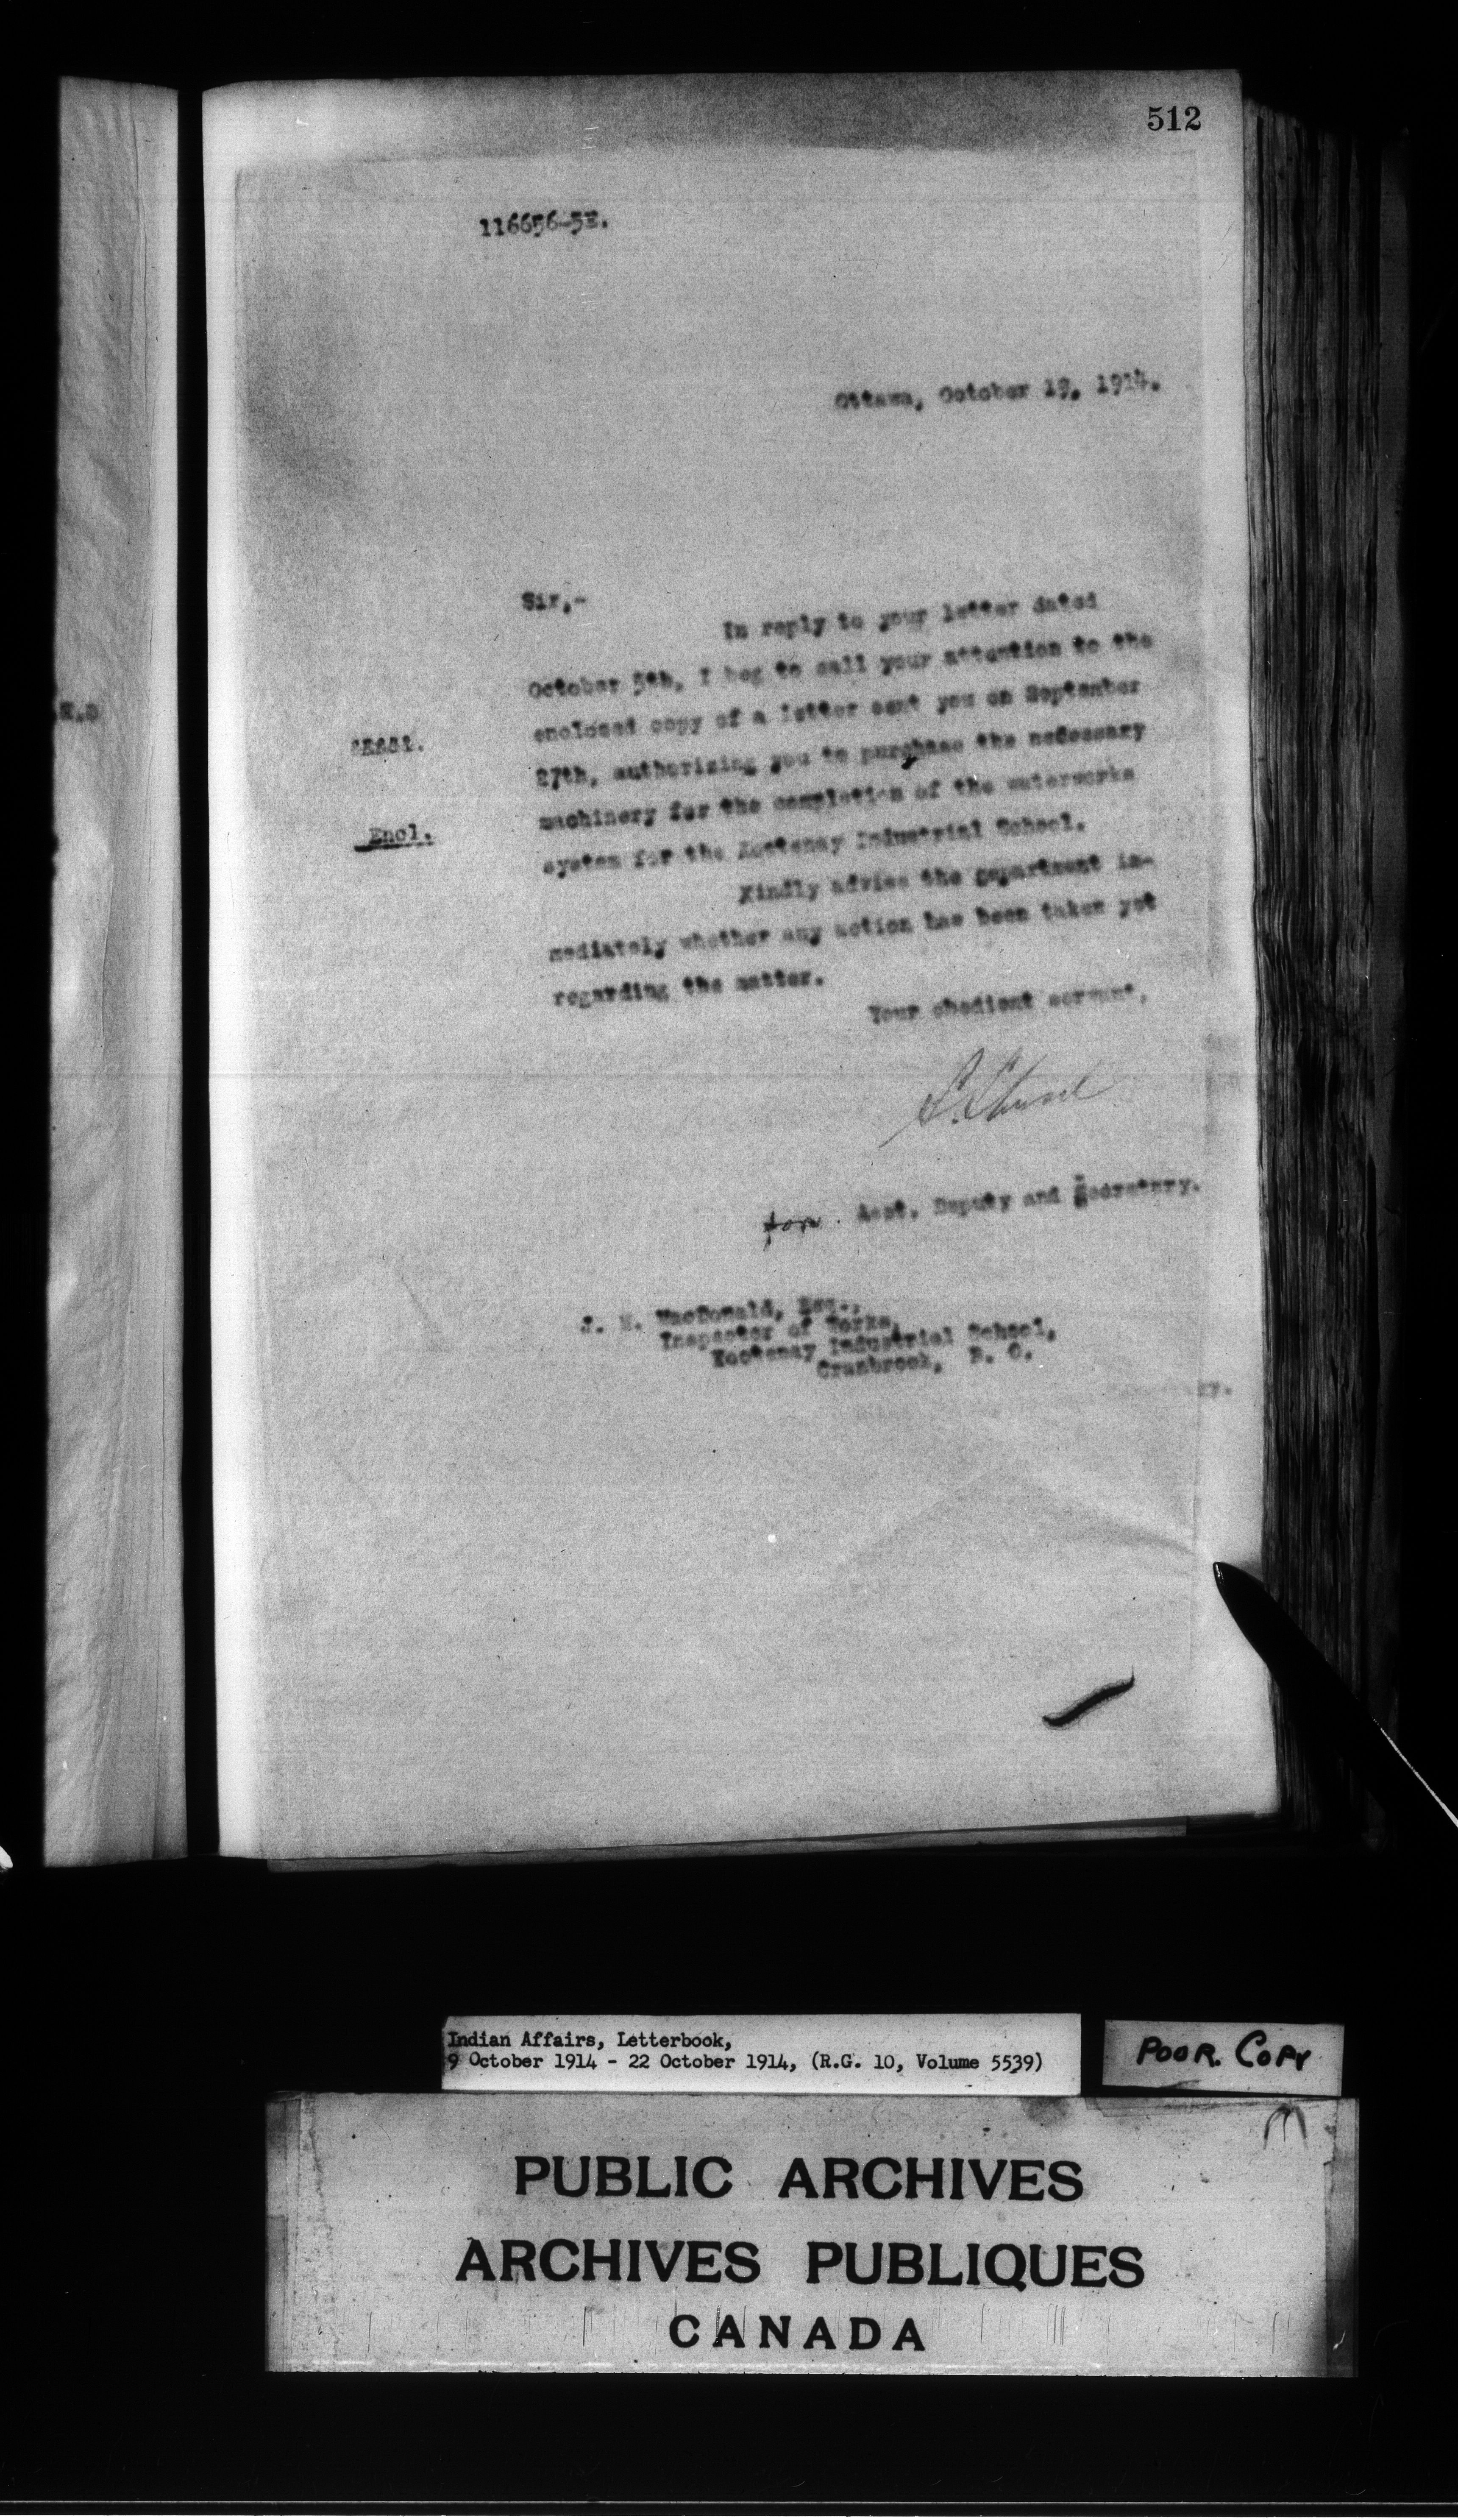 512
116656-5E.
Ottawa, October 19, 1914.
Sir,-
In reply to your letter dated
October 5th, I beg to call your attention to the
enclosed copy of a letter sent you on September
27th, authorizing you to purchase the necessary
machinery for the completion of the waterworks
system for the Kootenay Industrial School.
Encl.
Kindly advise the department im-
mediately whether any action has been taken yet
regarding the matter.
Your obedient servant,
for Asst. Deputy and Secretary.
MacDonald, Esq.,
Inspector of Works,
Kootenay Industrial School,
Cranbrook, B. C.
Indian Affairs, Letterbook,
9 October 1914 - 22 October 1914, (R.G. 10, Volume 5539)
POOR. COPY
PUBLIC ARCHIVES
ARCHIVES PUBLIQUES
CANADA